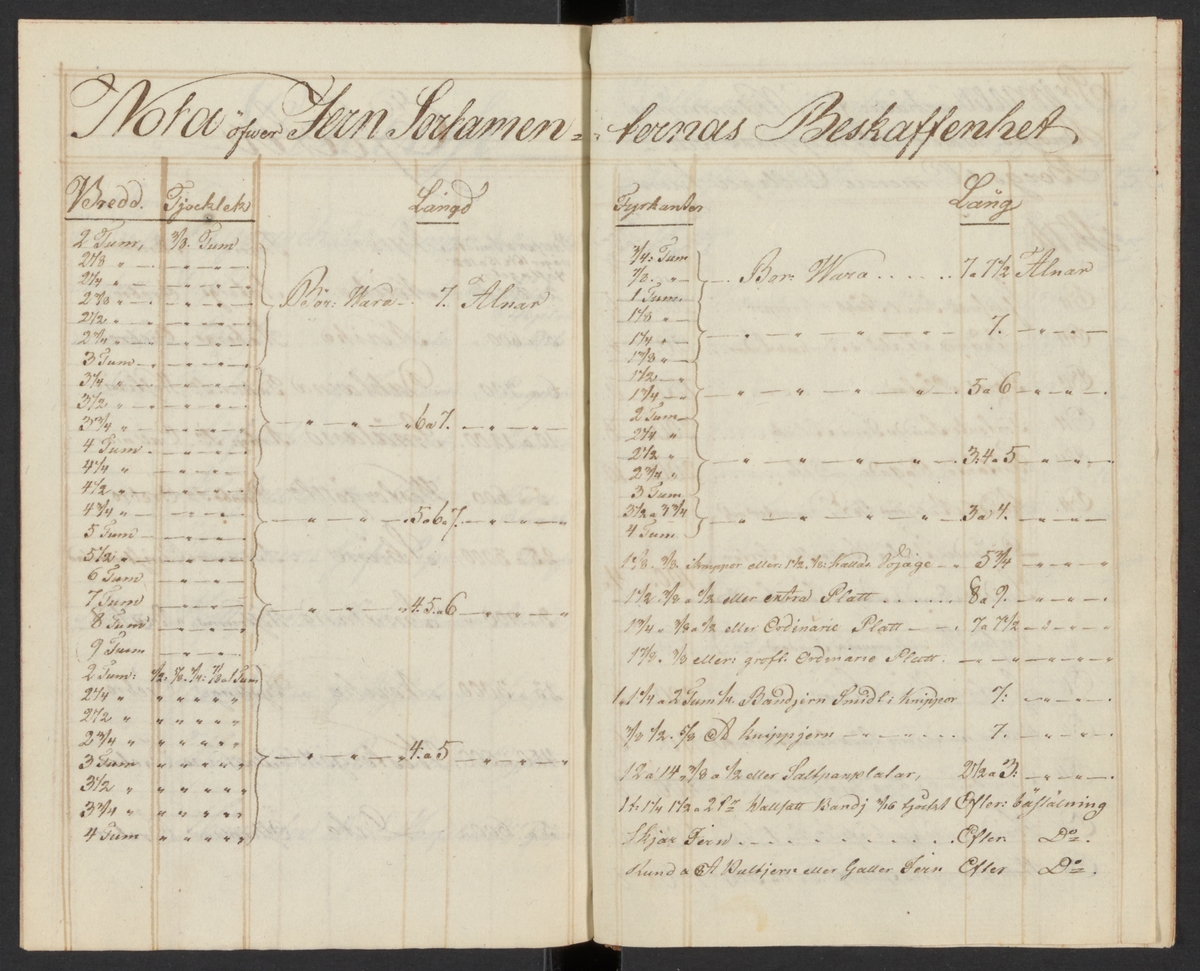 Nota öfwer Jern Sortamen=
Bredd. Tjocklek Längd
2 Tum, 3/8 Tum
2 1/8 " " " "
2 1/4 " " " "
2 3/8 " " " " Bör: Wara 7. Alnar
2 1/2 " " " "
2 3/4 " " " "
3 Tum " " "
3 1/4 " " " "
3 1/2 " " " "
3 3/4 " " " " " " " 6 a 7. " "
4 Tum " " "
4 1/4 " " " "
4 1/2 " " " "
4 3/4 " " " " " " " 5 a 6 a 7. " "
5 Tum " " "
5 1/2 " " " "
6 Tum " " "
7 Tum " " "
8 Tum " " " " " " 4. 5. a 6 " " "
9 Tum " " "
2 Tum: 1/2: 5/8. 3/4: 7/8 a 1 Tum
2 1/4 " " " " " "
2 1/2 " " " " " "
2 3/4 " " " " " "
3 Tum " " " " " " " " 4. a 5 " " "
3 1/2 " " " " " "
3 3/4 " " " " " "
4 Tum " " " " "
ternas Beskaffenhet
Fyrkanter Läng
3/4: Tum
7/8. " Bör: Wara 7 a 7 1/2 Alnar
1 Tum
1 1/8 "
1 1/4 " " " " " " 7. " " "
1 3/8 "
1 1/2 "
1 3/4 " " " " " " 5 a 6 " " "
2 Tum
2 1/4 "
2 1/2 " " " " " " 3: 4 a 5 " " "
2 3/4 "
3 Tum
3 1/2 a 3 3/4 " " " " " 3 a 4. " " "
4 Tum
eller: kallas Vojage 5 3/4 " " "
1 1/2 3/8 a 1/2 eller extra Platt 8 a 9. " " "
1 3/4 " 3/8 a 1/2 eller Ordinarie Platt 7 a 7 1/2 " " "
eller: groft Ordinarie Platt. " " "
a 2 Tum Bandjern Smidt i knippor 7: " " "
3/8 1/2. 5/8 knippjern 7. " " "
12 a 14 a 3/8 a 1/2 eller Saltpanplatar, 2 1/2 a 3: " " "
Bandj tjockt Efter: bästälning
Jern Efter Do.
Rund a Bultjern eller Galler Jern Efter Do.